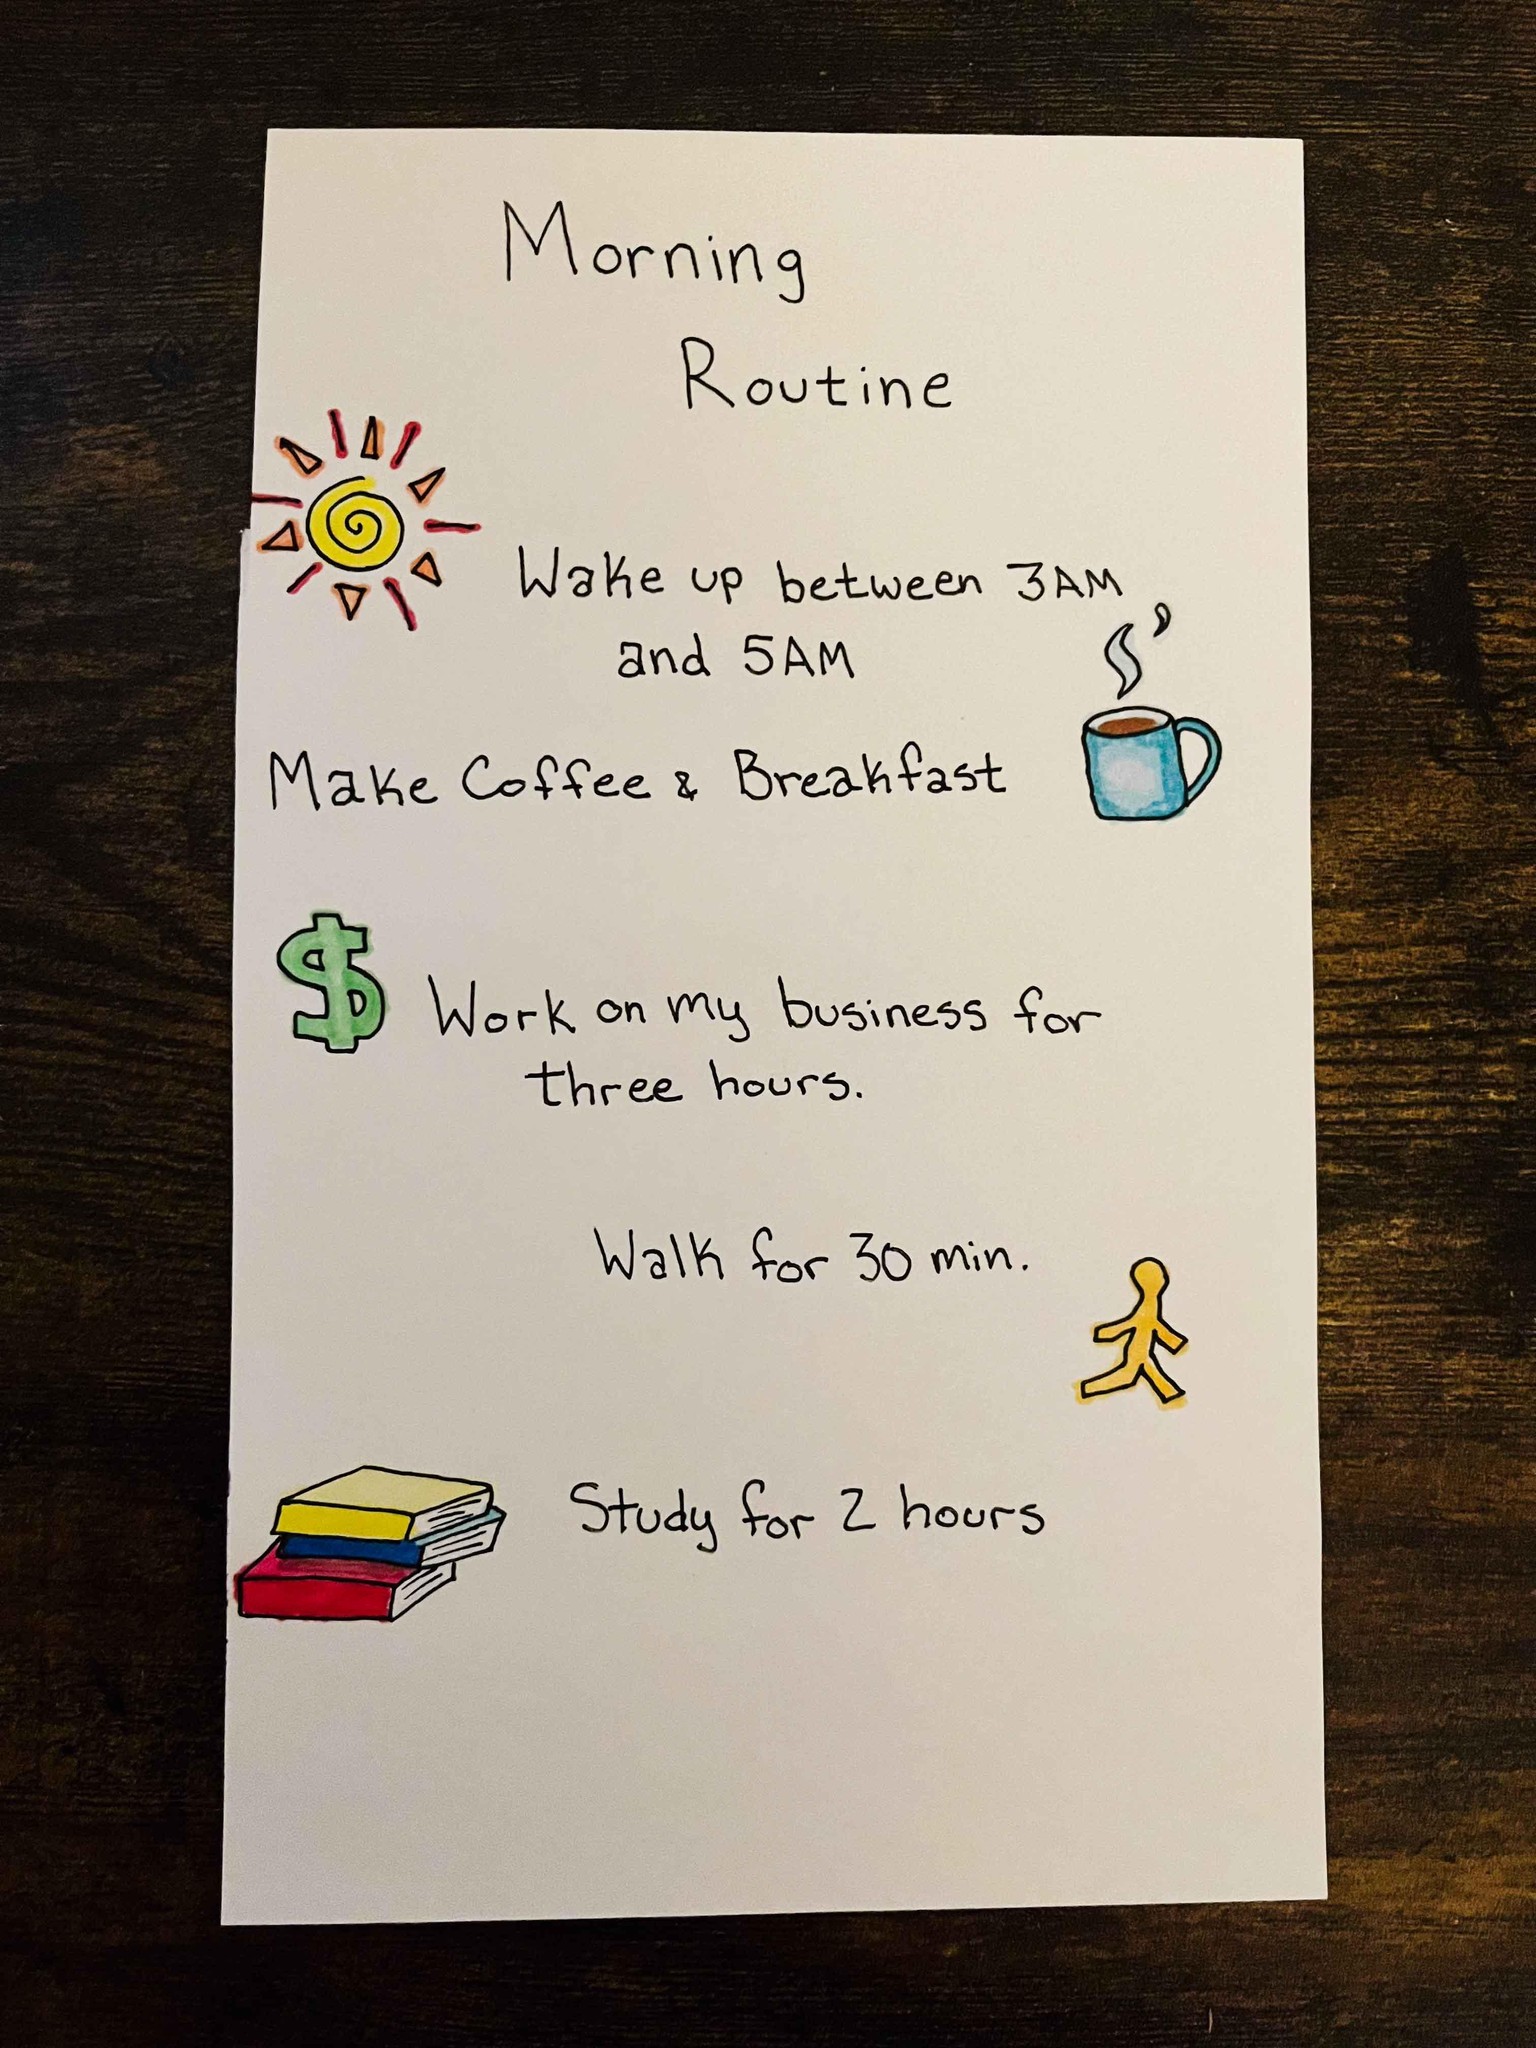 Morning
Routine
Wake up between 3AM
and 5AM
Make Coffee & Breakfast
$ Work on my business for
three hours.
Walk for 30 min.
Study for 2 hours